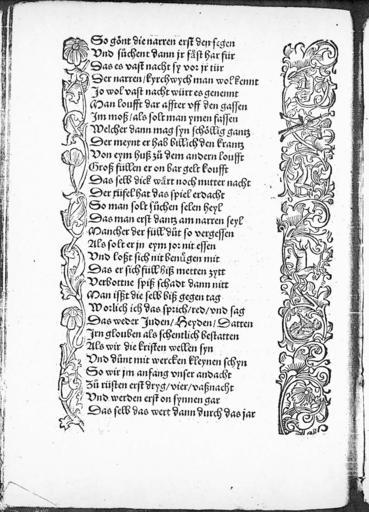 So gönt die narren erst den segen
Vnd süchent dann jr fäst har für
Das es vast nacht sy vor jr tür
Der narren/kyrchwych man wol kennt
Jo wol vast nacht würt es genennt
Man loufft dar affter vff den gassen
Jn moß/als solt man ymen fassen
Welcher dann mag syn schöllig gantz
Der meynt er hab billich den krantz
Von eym huß zů dem andern loufft
Groß füllen er on bar gelt koufft
Das selb dick wärt noch mitter nacht
Der tüfel hat das spiel erdacht
So man solt süchen selen heyl
Das man erst dantz am narren seyl
Mancher der füll düt so vergessen
Als solt er jn eym jor nit essen
Vnd loßt sich nit benůgen mit
Das er sich füll biß metten zytt
Verbottne spiß schadt dann nitt
Man ißßt die selb biß gegen tag
Worlich ich das sprich/red/vnd sag
Das weder Juden/Heyden/Datten
Jrn glouben als schentlich bestatten
Als wir die kristen wellen syn
Vnd dünt mit wercken kleynen schyn
So wir jm anfang vnser andacht
Zů rüsten erst dryg/vier/vaßnacht
Vnd werden erst on synnen gar
Das selb das wert dann durch das jar